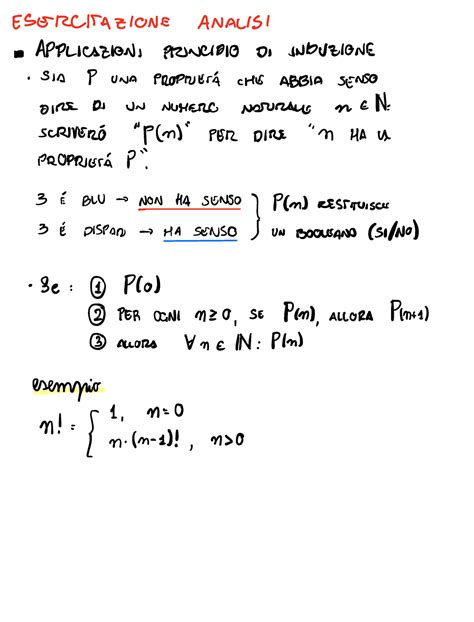 ESERCITAZIONE ANALISI
▪ APPLICAZIONI PRINCIPIO DI INDUZIONE
· SIA P UNA PROPRIETÁ CHE ABBIA SENSO
DIRE DI UN NUMERO NATURALE n ∈ ℕ.
SCRIVERÓ "P(n)" PER DIRE "n HA LA
PROPRIETÁ P".
3 É BLU → NON HA SENSO
3 É DISPARI → HA SENSO
P(n) RESTITUISCE
UN BOOLEANO (SI/NO)
· Se : ① P(0)
② PER OGNI n ≥ 0, SE P(n), ALLORA P(n+1)
③ ALLORA ∀ n ∈ ℕ : P(n)
esempio
n! = { 1, n = 0
n·(n-1)! , n>0